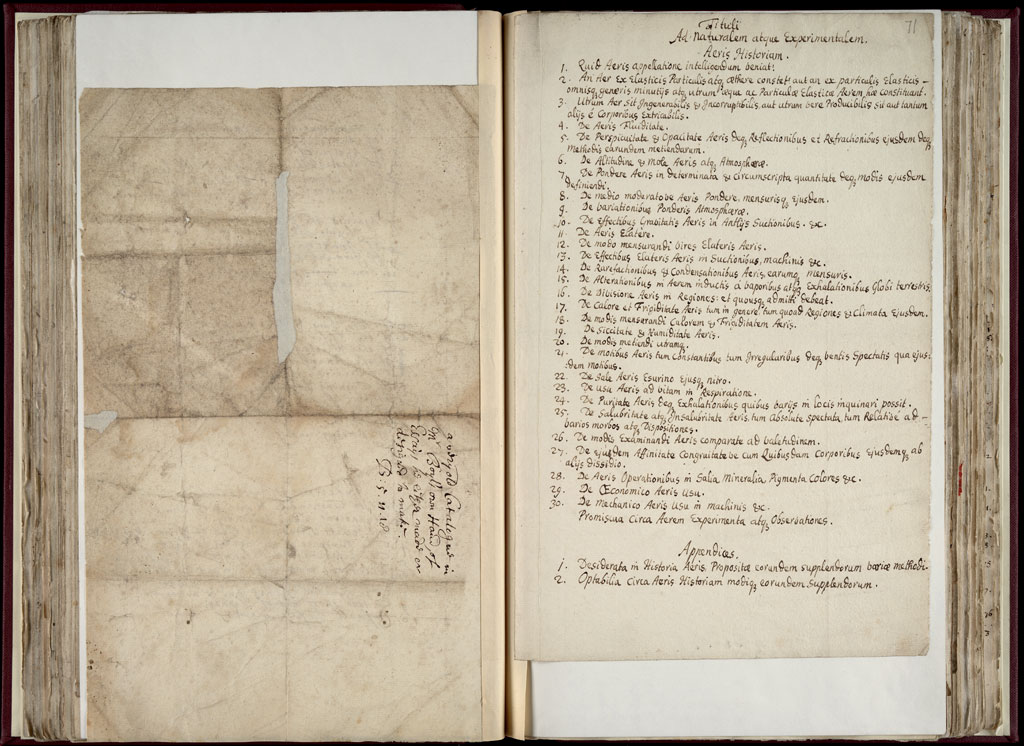 a very old Catalogue in
Mr Boyls own Hand of
Essays he either made or
designed to make
B. 5. 11. 18
71
Tituli
Ad Naturalem atque Experimentalem
Aeris Historiam.
1. Quid Aeris appellatione intelligendum veniat.
2. An Aer Ex Elasticis Particulis atq; æthere constet, aut an ex particulis Elasticis
omnisq; generis minutijs atq; utrum æque ac Particulæ Elasticæ Aerem hæ constituant.
3. Utrum Aer sit Ingenerabilis & Incorruptibilis, aut utrum vere Producibilis sit aut tantum
alijs é Corporibus Extricabilis.
4. De Aeris Fluiditate.
5. De Perspicuitate & Opacitate Aeris deq; Reflectionibus et Refractionibus ejusdem deq;
Methodis earundem metiendarum.
6. De Altitudine & mole Aeris atq; Atmosphæræ.
7. De Pondere Aeris in determinata & circumscripta quantitate deq; modis ejusdem
definiendi.
8. De medio moderatove Aeris Pondere, mensurisq; Ejusdem.
9. De variationibus Ponderis Atmosphæræ.
10. De Effectibus Gravitatis Aeris in Antlijs Suctionibus. &c.
11. De Aeris Elatere.
12. De modo mensurandi vires Elateris Aeris.
13. De Effectibus Elateris Aeris in Suctionibus, machinis &c.
14. De Rarefactionibus & Condensationibus Aeris, earumq; mensuris.
15. De Alterationibus in Aerem inductis á vaporibus atq; Exhalationibus Globi terrestris.
16. De Divisione Aeris in Regiones: et quousq; admitti debeat.
17. De Calore et Frigiditate Aeris tum in genere, tum quoad Regiones & Climata Ejusdem.
18. De modis mensurandi Calorem & Frigiditatem Aeris.
19. De Siccitate & Humiditate Aeris.
20. De modis metiendi utramq;.
21. De motibus Aeris tum Constantibus tum Irregularibus deq; ventis Spectatis qua ejus:
:dem motibus.
22. De Sale Aeris Esurino Ejusq; nitro.
23. De usu Aeris ad vitam in Respiratione.
24. De Puritate Aeris deq; Exhalationibus quibus varijs in locis inquinari possit.
25. De Salubritate atq; Insalubritate Aeris, tum Absolute Spectata, tum Relative ad
varios morbos atq; Dispositiones.
26. De modis Examinandi Aeris comparate ad valetudinem.
27. De ejusdem Affinitate Congruitate ve cum Quibusdam Corporibus Ejusdemq; ab
alijs dissidio.
28. De Aeris Operationibus in Salia Mineralia, Pigmenta Colores &c.
29. De Œconomico Aeris usu.
30. De Mechanico Aeris usu in machinis &c.
Promiscua Circa Aerem Experimenta atq; Observationes.
Appendices.
1. Desiderata in Historia Aeris Proposita eorundem supplendorum variæ methodi.
2. Optabilia circa Aeris Historiam modiq; eorundem Supplendorum.